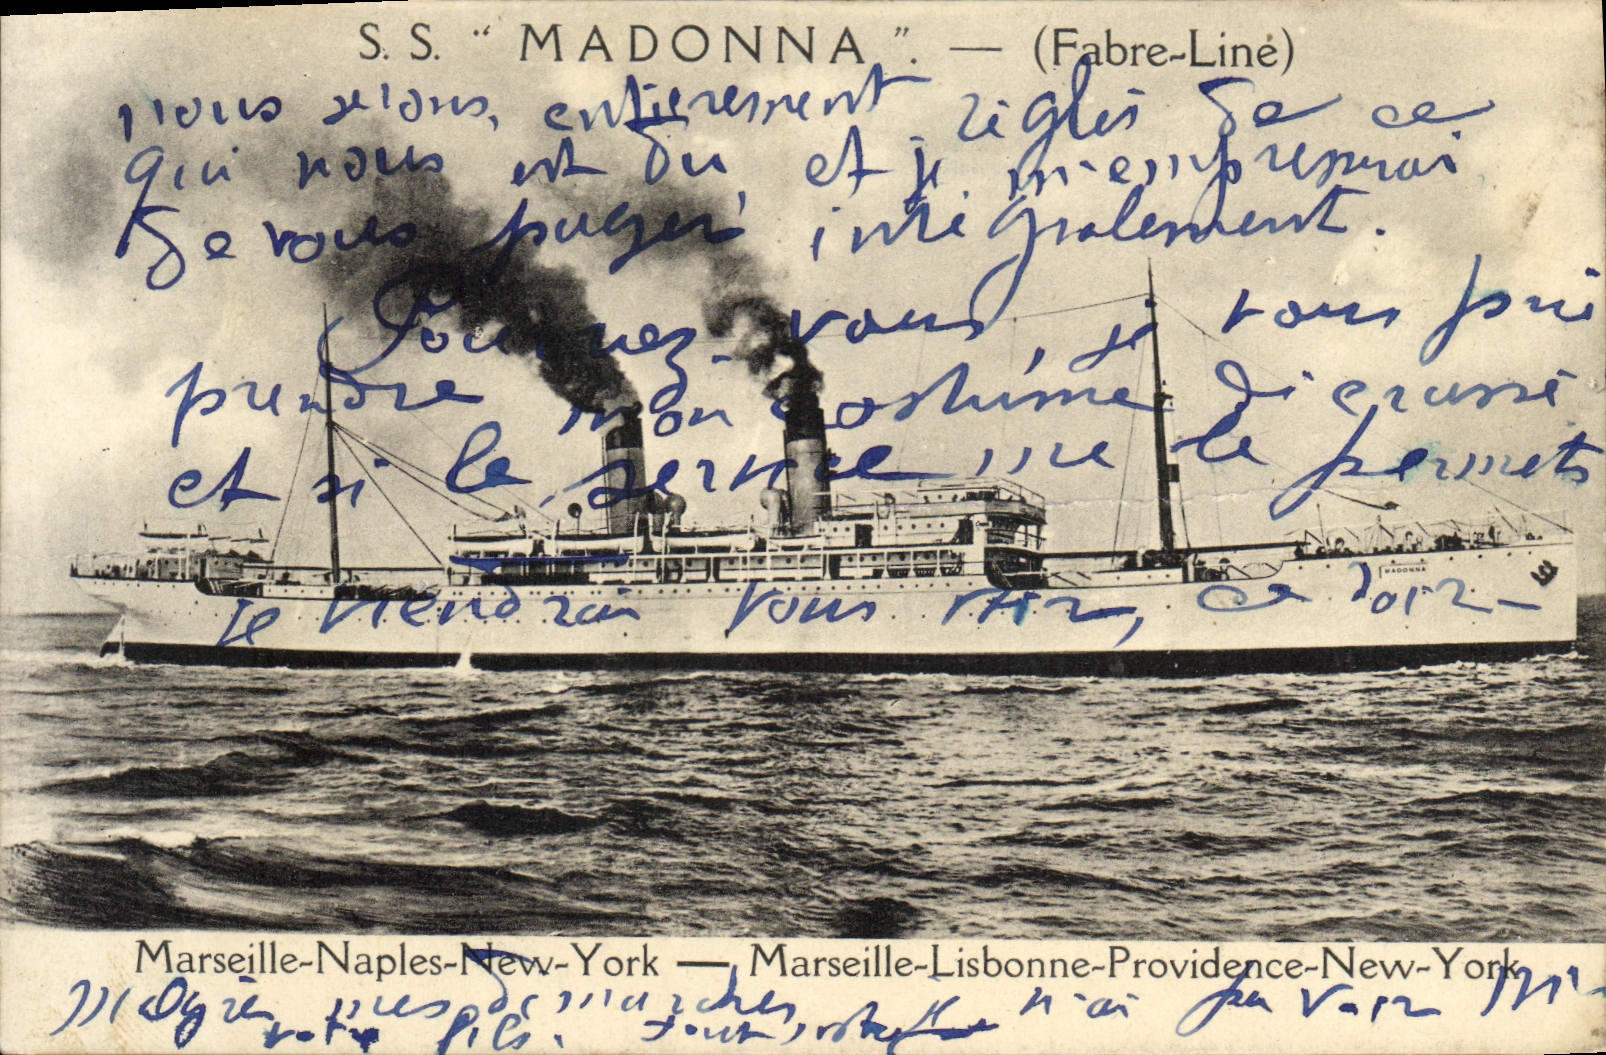 S. S. “ MADONNA ”. — (Fabre-Line)
nous serons, entierement réglés de ce
qui nous est dû et je m'empresserai
de vous payer intégralement.
Pourriez-vous, je vous prie
prendre mon costume dégraissé
et si le service me le permets
je viendrai vous voir, ce soir
Marseille-Naples-New-York — Marseille-Lisbonne-Providence-New-York
Malgrés mes démarches n'ai pu voir Mr
votre fils. tout votre